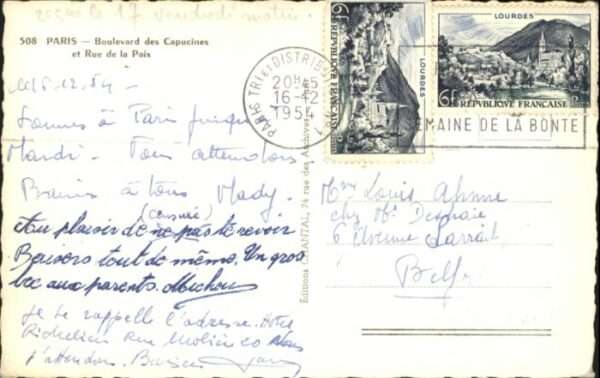 le 17 vendredi matin.
508 PARIS — Boulevard des Capucines
et Rue de la Paix
16-12-54
Sommes à Paris jusqu'
Mardi. Vous attendons
Baisers à tous Mady.
(censuré)
Au plaisir de ne pas te revoir
Baisers tout de même. Un gros
bec aux parents. Michou
Je te rappelle l'adresse. Hôtel
Richelieu Rue Molière 20 Nous
t'attendons. Baisers
Editions CHANTAL, 74 rue des Archives
PARIS TRI ET DISTRIB
20H45
16-12
1954
SEMAINE DE LA BONTE
6F
REPUBLIQUE FRANÇAISE
LOURDES
LOURDES
6F
REPUBLIQUE FRANÇAISE
Mme Louis
chez Mr
6 Avenue
Belf